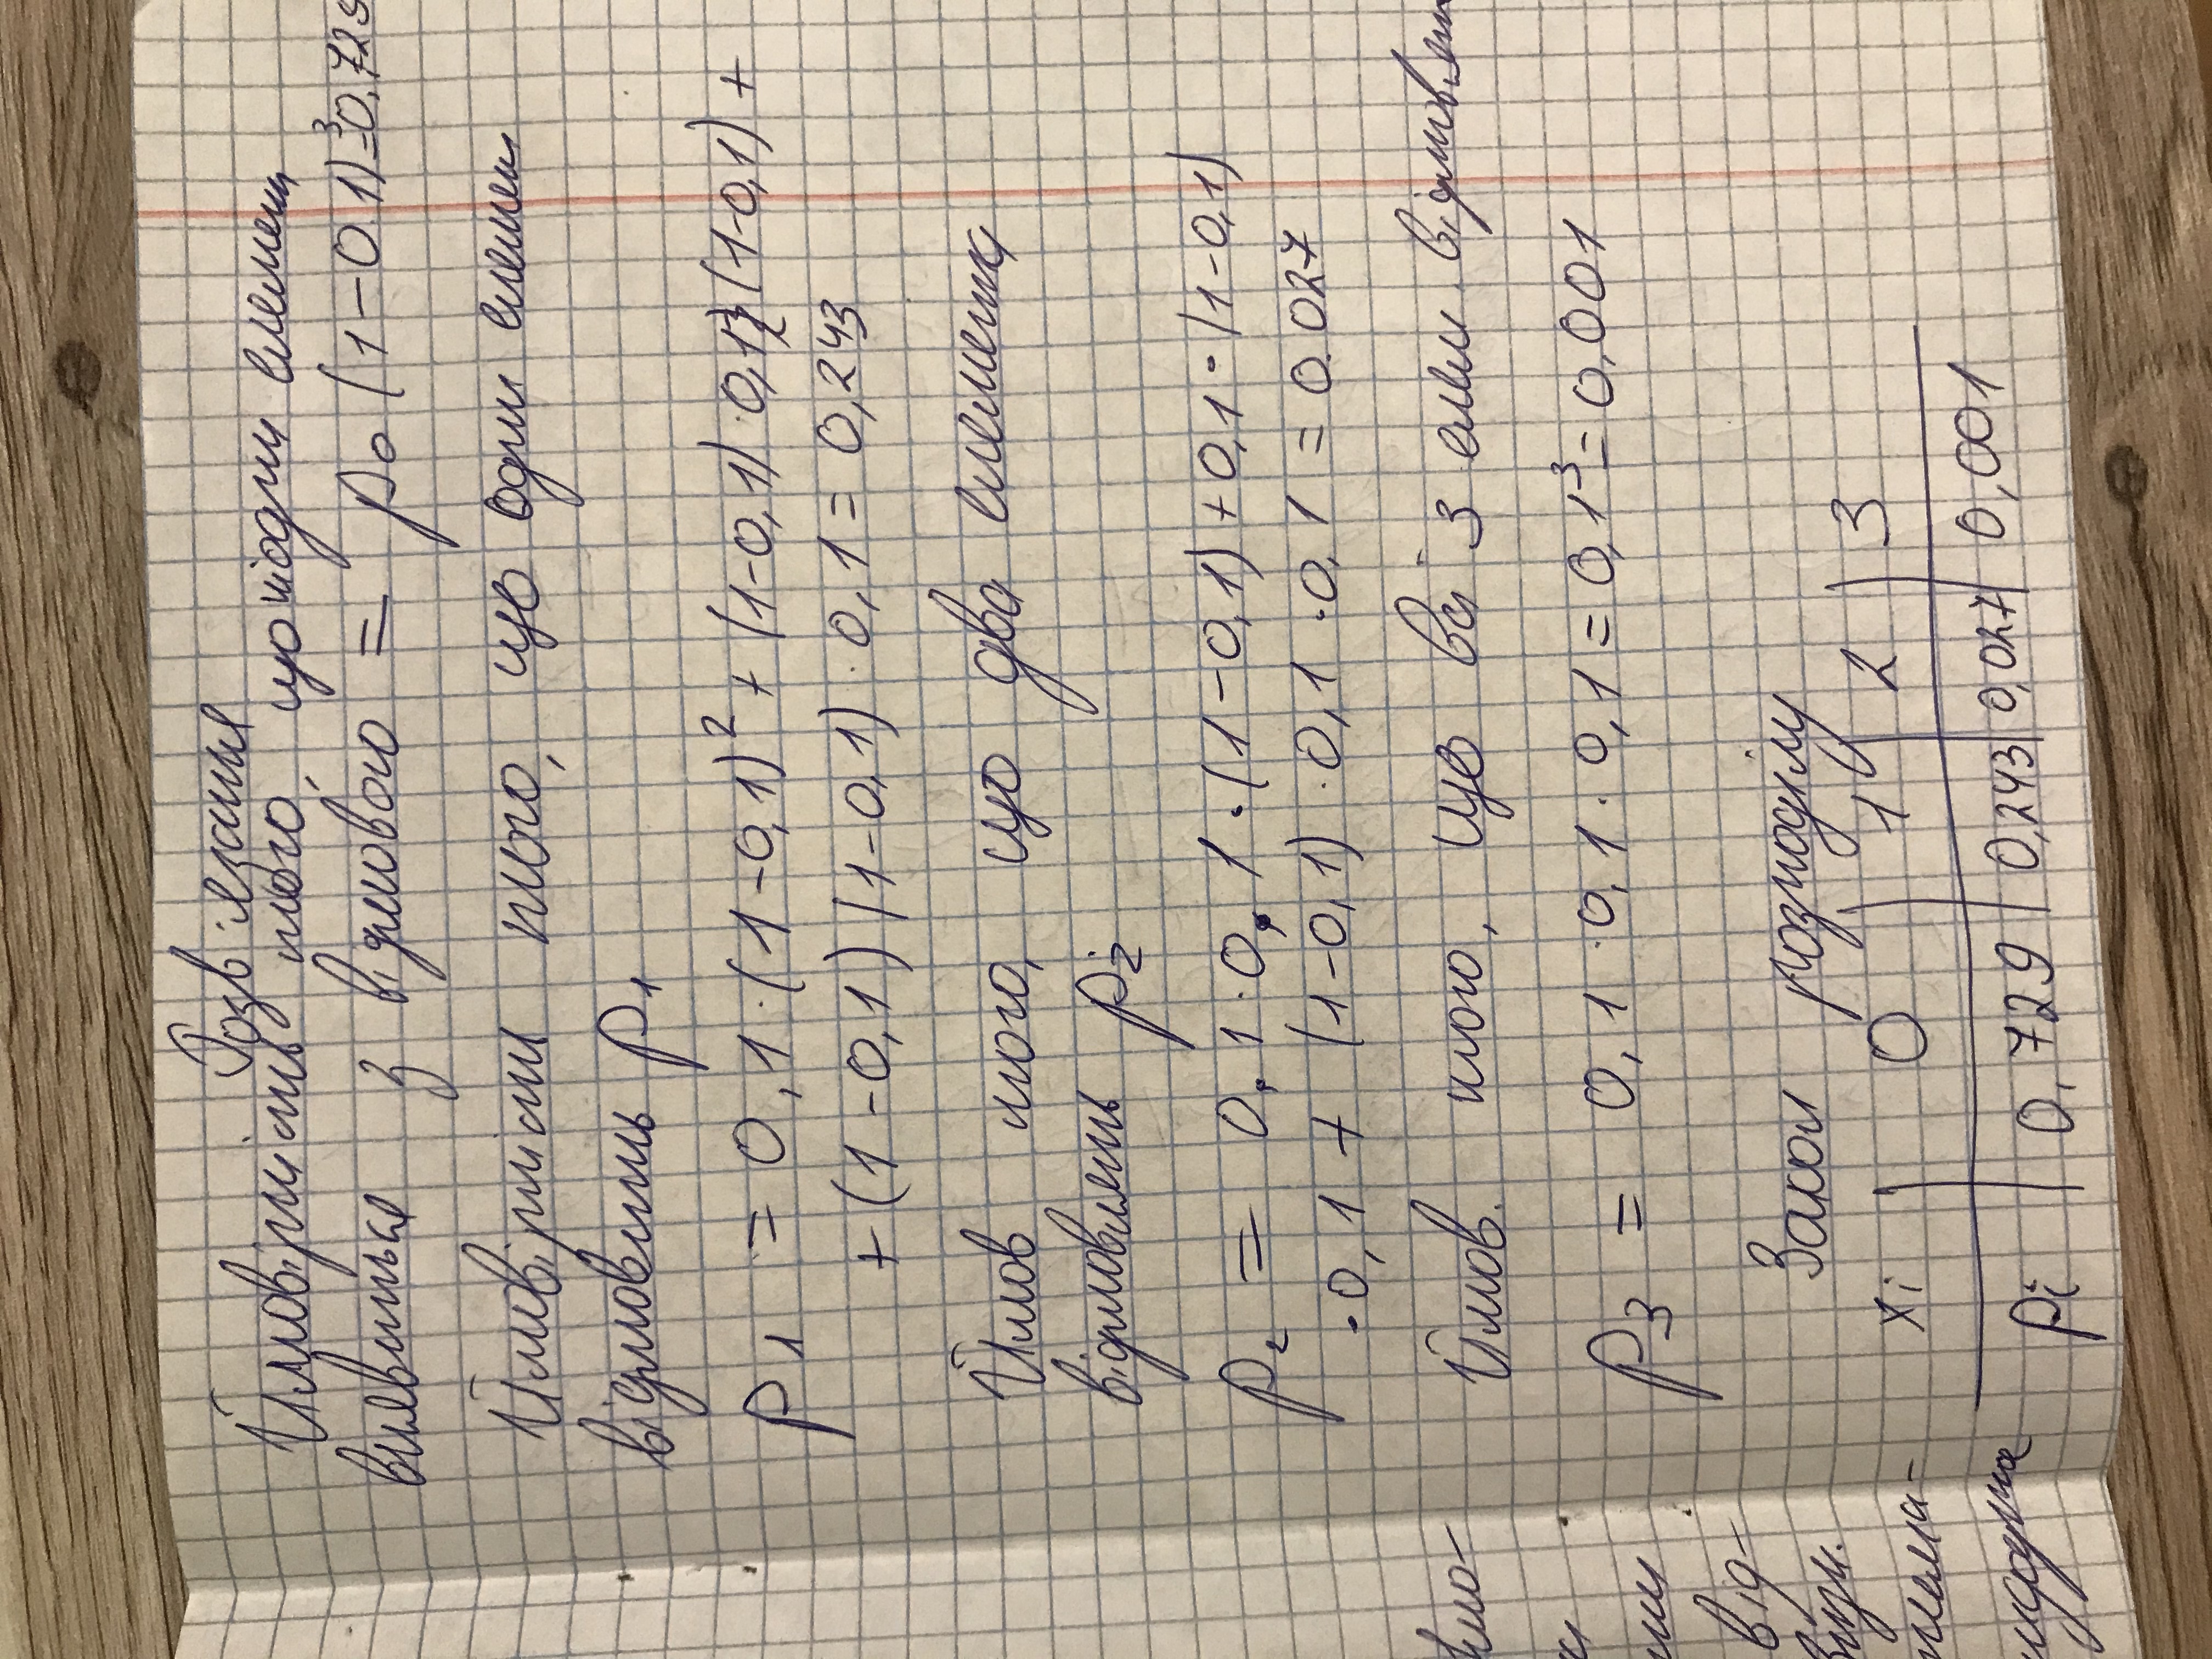 Розв'язання
Ймовірність того, що жоден елемент
виявиться з відмовою = p0 (1-0.1)³=0,729
Ймовірність того, що один елемен
відмовить p1
p1 = 0,1·(1-0,1)² + (1-0,1)·0,1·(1-0,1) +
+ (1-0,1)(1-0,1)·0,1 = 0,243
Ймов того, що два елемента
відмовлять p2
p2 = 0,1·0,1·(1-0,1)+0,1·(1-0,1)
·0,1 + (1-0,1)·0,1·0,1 = 0.027
Ймов. того, що всі 3 елем. відмовлят
p3 = 0,1·0,1·0,1=0,1³=0,001
Закон розподілу
xi | 0 | 1 | 2 | 3
pi | 0,729 | 0,243 | 0,027 | 0,001
від-